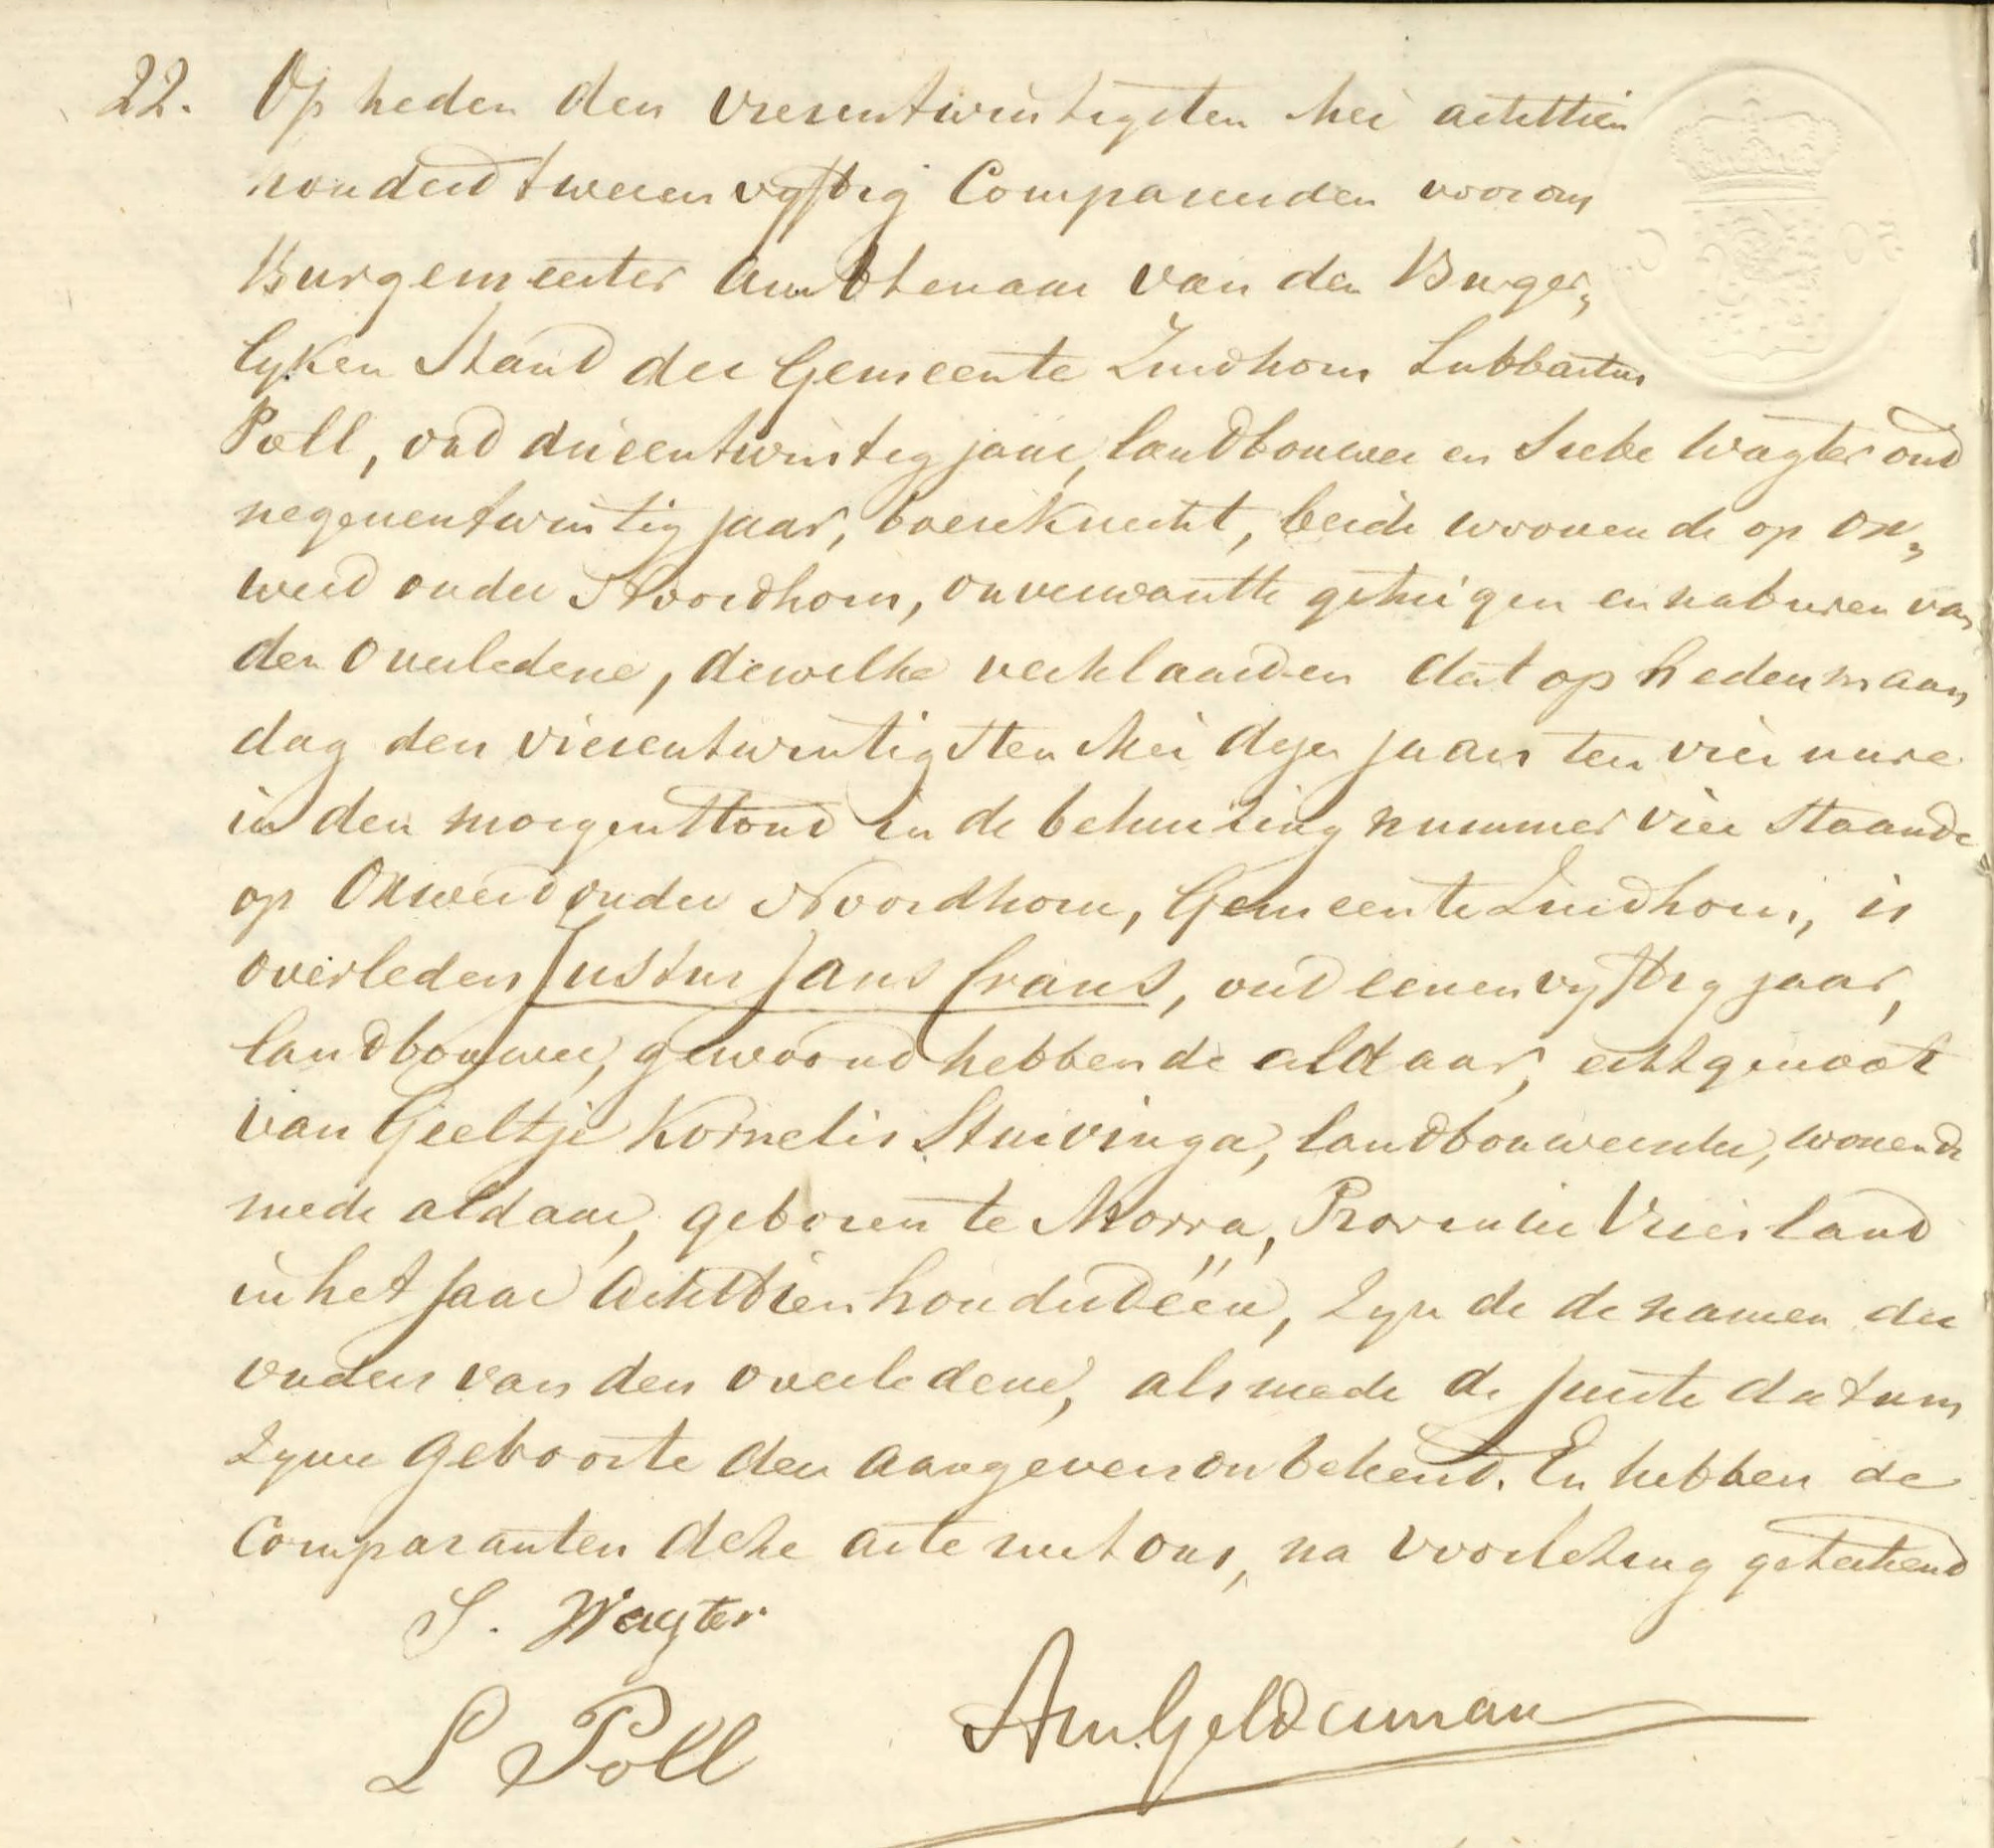 22. Op heden den vierentwintigsten Mei achttien
honderd tweeenvyftig Compareerden voor ons
Burgemeester Ambtenaar van den Burger„
lyken Stand der Gemeente Zuidhorn Lubbartus
Poll, oud drieentwintig jaar, landbouwer en Siebe Wagter oud
negenentwintig jaar, boereknecht, beide woonende op Ox„
werd onder Noordhorn, onverwantte getuigen en naburen van
den Overledene, dewelke verklaarden dat op heden maan
dag den vierentwintigsten Mei dezer jaars ten vier uure
in den morgenstond in de behuizing nummer vier staande
op Oxwerd onder Noordhorn, Gemeente Zuidhorn, is
overleden Justus Jans Crans, oud eenenvyftig jaar,
landbouwer, gewoond hebbende aldaar, echtgenoot
van Geeltje Kornelis Stuivinga, landbouwersche, wonende
mede aldaar, geboren te Morra, Provincie Vriesland
in het jaar achttienhonderdëén, Zynde de namen der
ouders van den overledene, alsmede de juiste datum
Zyner geboorte den aangevers onbekend. En hebben de
Comparanten deze acte met ons, na voorlezing getekend
S. Wagter
L Poll